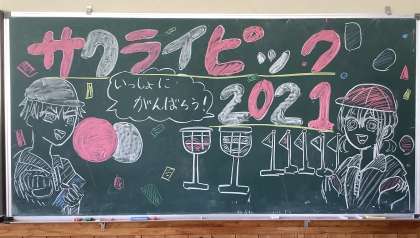 サクライピック
2021
いっしょに
がんばろう!